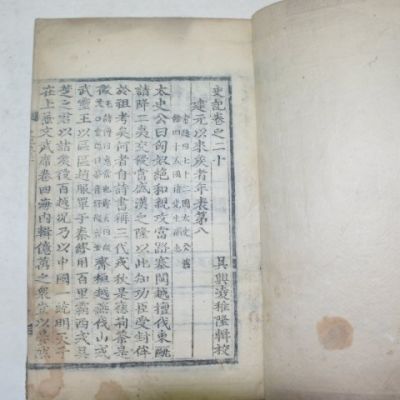 史記卷之二十
吳興凌稚隆輯校
建元以來侯者年表第八
太史公曰匈奴絕和親攻當路塞閩越擅伐東甌
請降二夷交侵當盛漢之隆以此知功臣受封侔
於祖考矣何者自詩書稱三代戎狄是膺荊荼是
徵
齊桓越燕伐山戎
武靈王以區區趙服單于秦繆用百里霸西戎吳
楚之君以諸侯役百越況乃以中國一統明天子
在上兼文武席卷四海內輯億萬之眾豈以晏